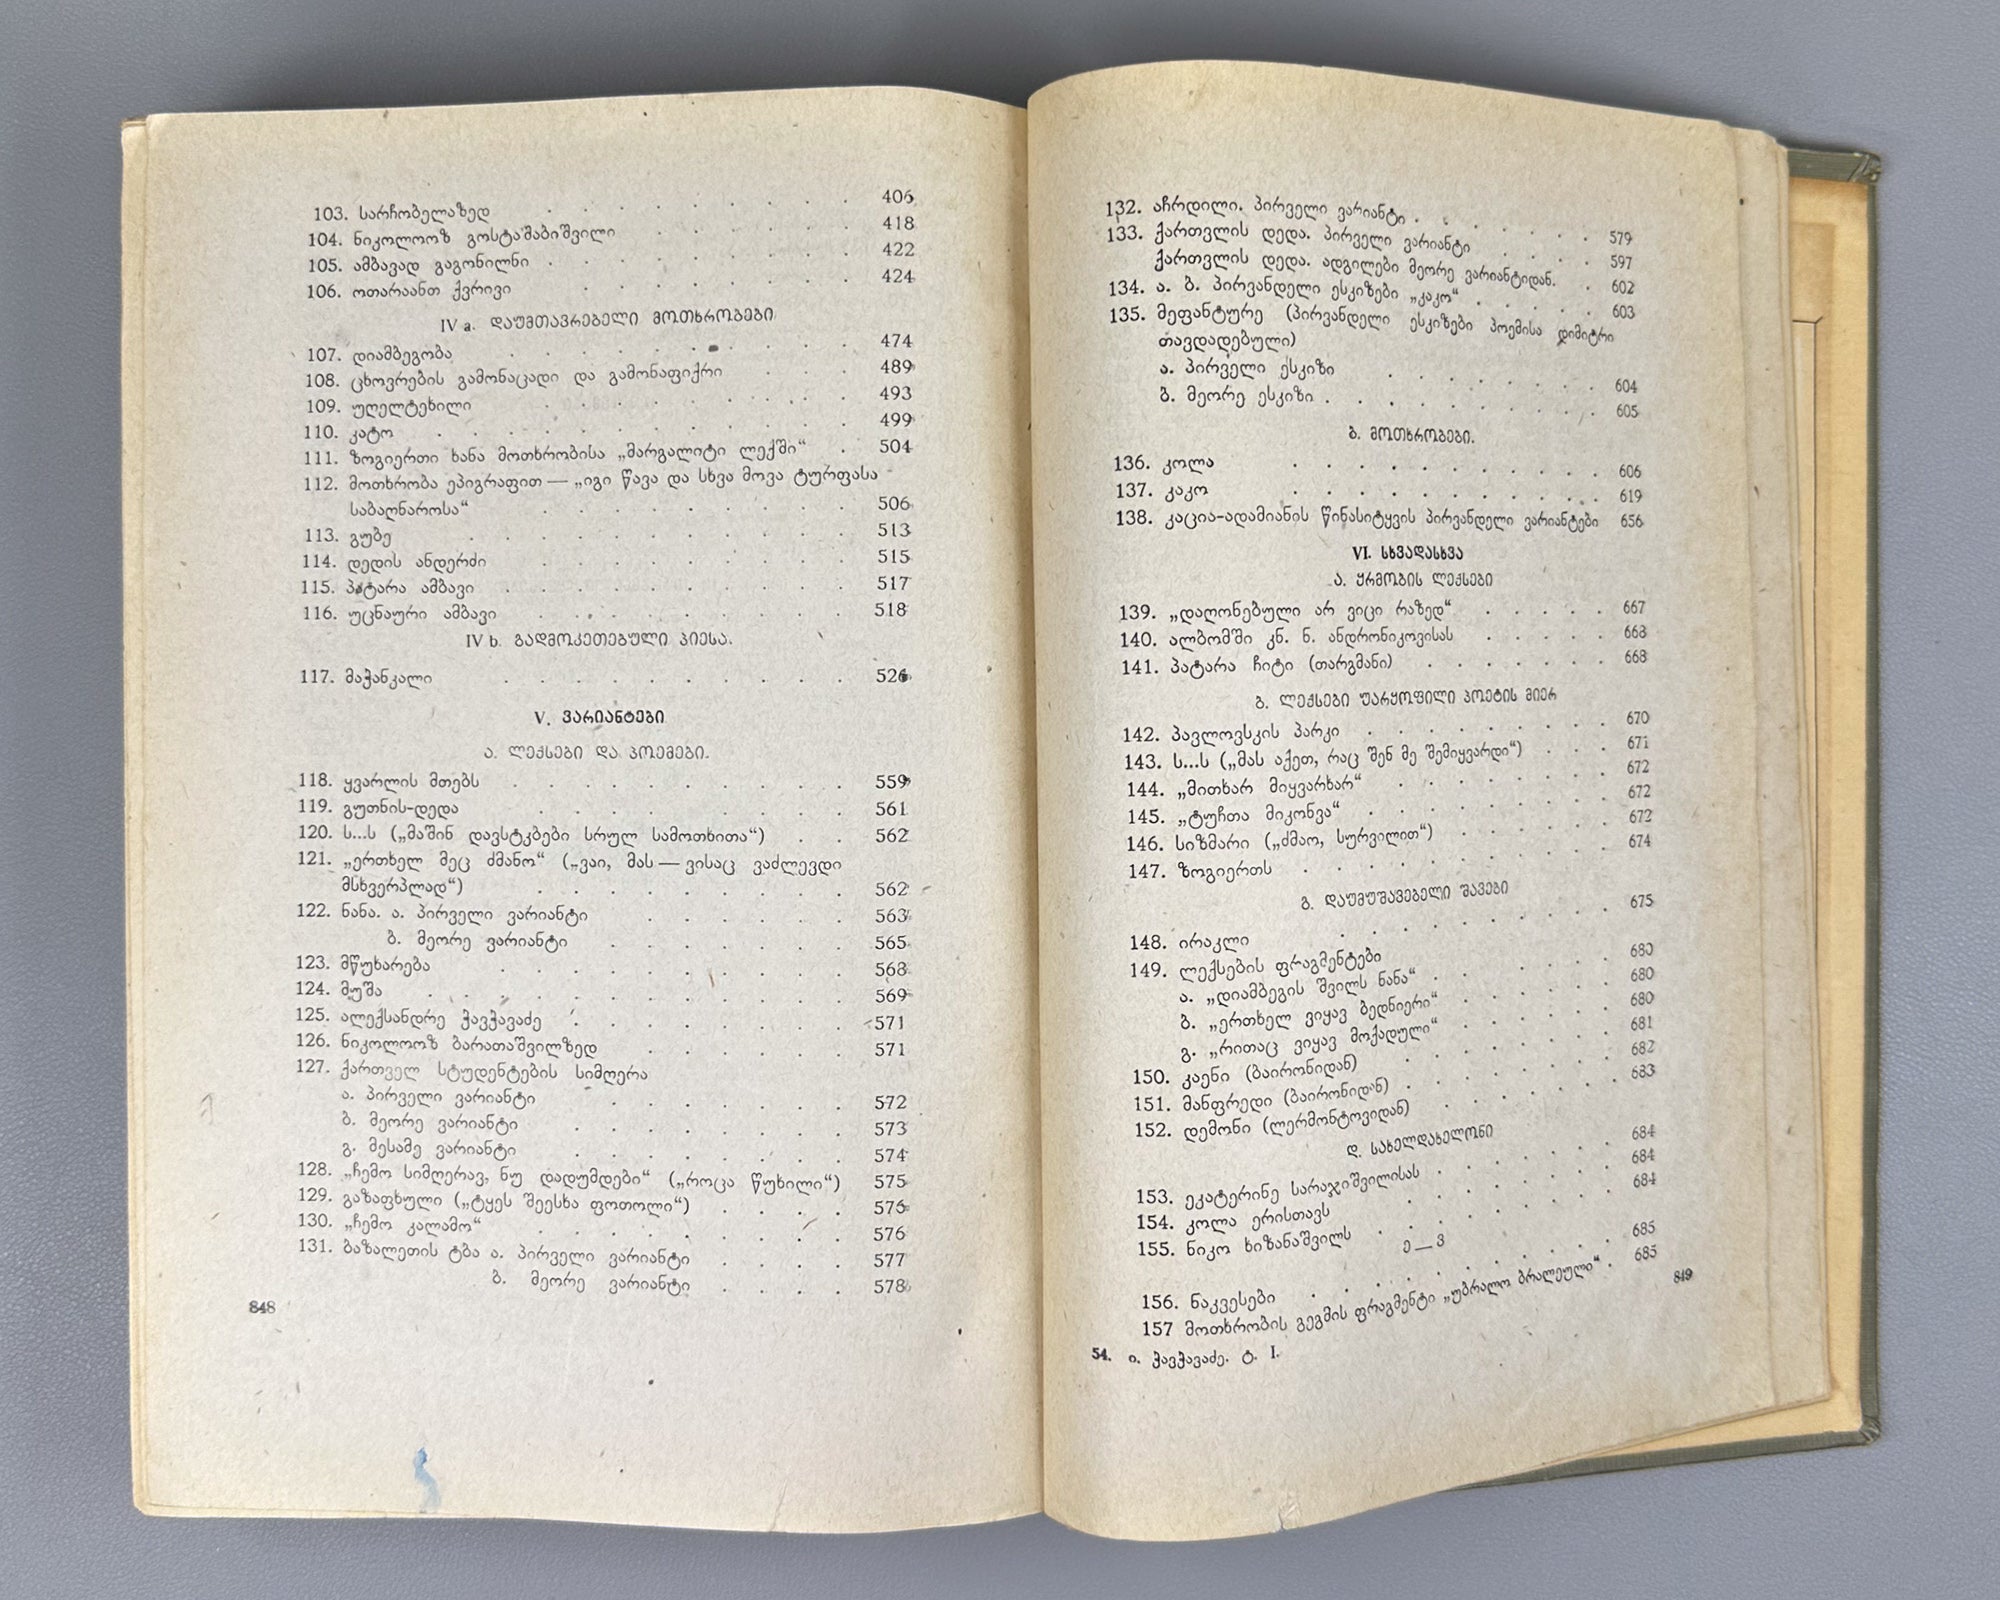 103. სარჩობელაზედ . . . . . . . . 406
104. ნიკოლოოზ გოსტაშაბიშვილი . . . . . 418
105. ამბავად გაგონილნი . . . . . . . . 422
106. ოთარაანთ ქვრივი . . . . . . . 424
IV a. დაუმთავრებელი მოთხრობები
107. დიამბეგობა . . . . . . . . . 474
108. ცხოვრების გამონაცადი და გამონაფიქრი . . . 489
109. უღელტეხილი . . . . . . . . 493
110. კატო . . . . . . . . . . 499
111. ზოგიერთი ხანა მოთხრობისა „მარგალიტი ლექში“ . 504
112. მოთხრობა ეპიგრაფით — „იგი წავა და სხვა მოვა ტურფასა
საბაღნაროსა“ . . . . . . . 506
113. გუბე . . . . . . . . . . 513
114. დედის ანდერძი . . . . . . . 515
115. პატარა ამბავი . . . . . . . . 517
116. უცნაური ამბავი . . . . . . . 518
IV b. გადმოკეთებული პიესა.
117. მაჭანკალი . . . . . . . . 526
V. ვარიანტები
ა. ლექსები და პოემები.
118. ყვარლის მთებს . . . . . . . . 559
119. გუთნის-დედა . . . . . . . . 561
120. ს...ს („მაშინ დავსტკბები სრულ სამოთხითა“) . . 562
121. „ერთხელ მეც ძმანო“ („ვაი, მას — ვისაც ვაძლევდი
მსხვერპლად“) . . . . . . . 562
122. ნანა. ა. პირველი ვარიანტი . . . . . 563
ბ. მეორე ვარიანტი . . . . . . 565
123. მწუხარება . . . . . . . . 568
124. მუშა . . . . . . . . . . 569
125. ალექსანდრე ჭავჭავაძე . . . . . . . 571
126. ნიკოლოოზ ბარათაშვილზედ . . . . . 571
127. ქართველ სტუდენტების სიმღერა
ა. პირველი ვარიანტი . . . . . . 572
ბ. მეორე ვარიანტი . . . . . . . 573
გ. მესამე ვარიანტი . . . . . . . 574
128. „ჩემო სიმღერავ, ნუ დადუმდები“ („როცა წუხილი“) 575
129. გაზაფხული („ტყეს შეესხა ფოთოლი“) . . . . 576
130. „ჩემო კალამო“ . . . . . . . . 576
131. ბაზალეთის ტბა ა. პირველი ვარიანტი . . . . 577
ბ. მეორე ვარიანტი . . . . 578
848
132. აჩრდილი. პირველი ვარიანტი . . . . . . . 579
133. ქართვლის დედა. პირველი ვარიანტი . . . . 597
ქართვლის დედა. ადგილები მეორე ვარიანტიდან. . 602
134. ა. ბ. პირვანდელი ესკიზები „კაკო“ . . . . . 603
135. მეფანტურე (პირვანდელი ესკიზები პოემისა დიმიტრი
თავდადებული)
ა. პირველი ესკიზი . . . . . . . 604
ბ. მეორე ესკიზი . . . . . . . . . 605
ბ. მოთხრობები.
136. კოლა . . . . . . . . . . 606
137. კაკო . . . . . . . . . . 619
138. კაცია-ადამიანის წინასიტყვის პირვანდელი ვარიანტები 656
VI. სხვადასხვა
ა. ყრმობის ლექსები
139. „დაღონებული არ ვიცი რაზედ“ . . . . 667
140. ალბომში კნ. ნ. ანდრონიკოვისას . . . . 668
141. პატარა ჩიტი (თარგმანი) . . . . . . 668
ბ. ლექსები უარყოფილი პოეტის მიერ
142. პავლოვსკის პარკი . . . . . . . . 670
143. ს...ს („მას აქეთ, რაც შენ მე შემიყვარდი“) . . . 671
144. „მითხარ მიყვარხარ“ . . . . . . . 672
145. „ტუჩთა მიკონვა“ . . . . . . . . 672
146. სიზმარი („ძმაო, სურვილით“) . . . . . 672
147. ზოგიერთს . . . . . . . . . 674
გ. დაუმუშავებელი შავები
148. ირაკლი . . . . . . . . . 675
149. ლექსების ფრაგმენტები
ა. „დიამბეგის შვილს ნანა“ . . . . . 680
ბ. „ერთხელ ვიყავ ბედნიერი“ . . . . . 680
გ. „რითაც ვიყავ მოქადული“ . . . . . 680
150. კაენი (ბაირონიდან) . . . . . . . 681
151. მანფრედი (ბაირონიდან) . . . . . . . 682
152. დემონი (ლერმონტოვიდან) . . . . . . 683
დ. სახელდახელონი
153. ეკატერინე სარაჯიშვილისას . . . . . . 684
154. კოლა ერისთავს . . . . . . . 684
155. ნიკო ხიზანაშვილს . . . . . . . . 684
ე — ვ
156. ნაკვესები . . . . . . . . . 685
157 მოთხრობის გეგმის ფრაგმენტი „უბრალო ბრალეული“ . 685
849
54. ი. ჭავჭავაძე. ტ. I.